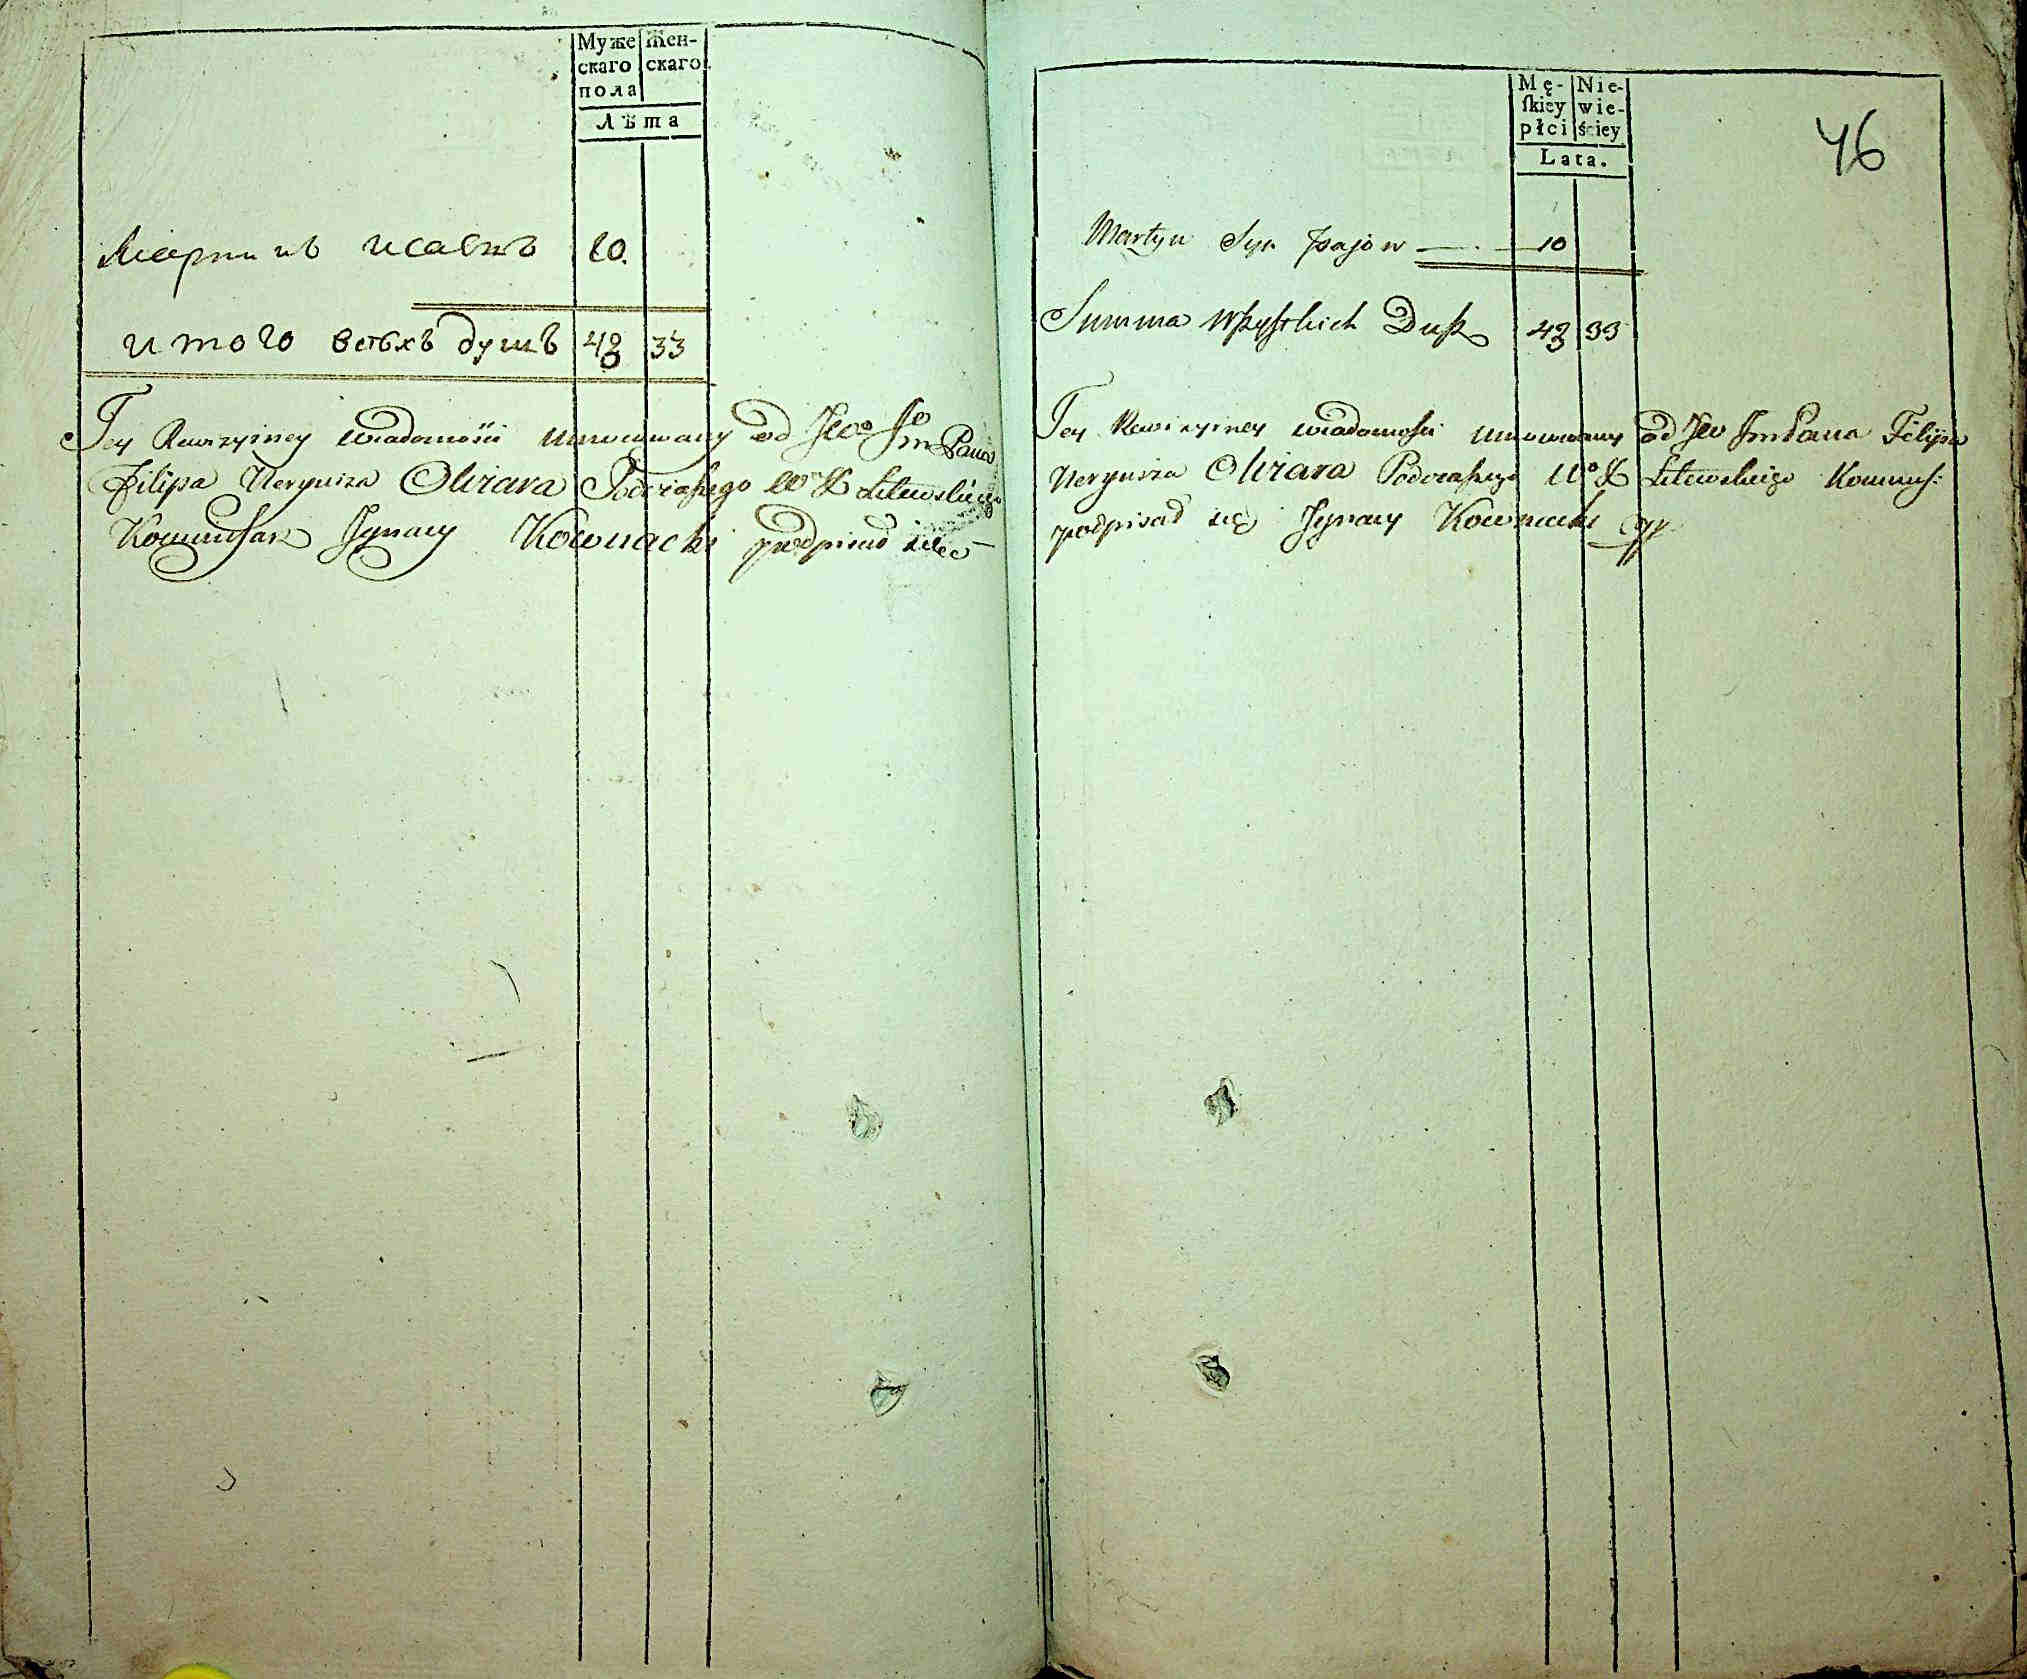 Муже Жен-
скаго скаго
пола
Лѣта
Мартинъ исаевъ 10.
итого всѣхъ душъ 43 33
Tey Rewizyiney wiadomości umocowany od JWo Jm Pana
Filipa Neryusza Olizara Podczaszego W X Litewskiego
Kommissarz Ignacy Kownacki podpisał się
Mę- Nie-
ſkiey wie-
płci ściey
Lata.
46
Martyn Syn Jzajow 10
Summa Wszystkich Dusz 43 33
Tey Rewizyiney wiadomości umocowany od JW Jm Pana Filipa
Neryusza Olizara Podczaszego W X Litewskiego Kommiss:
podpisał się Ignacy Kownacki